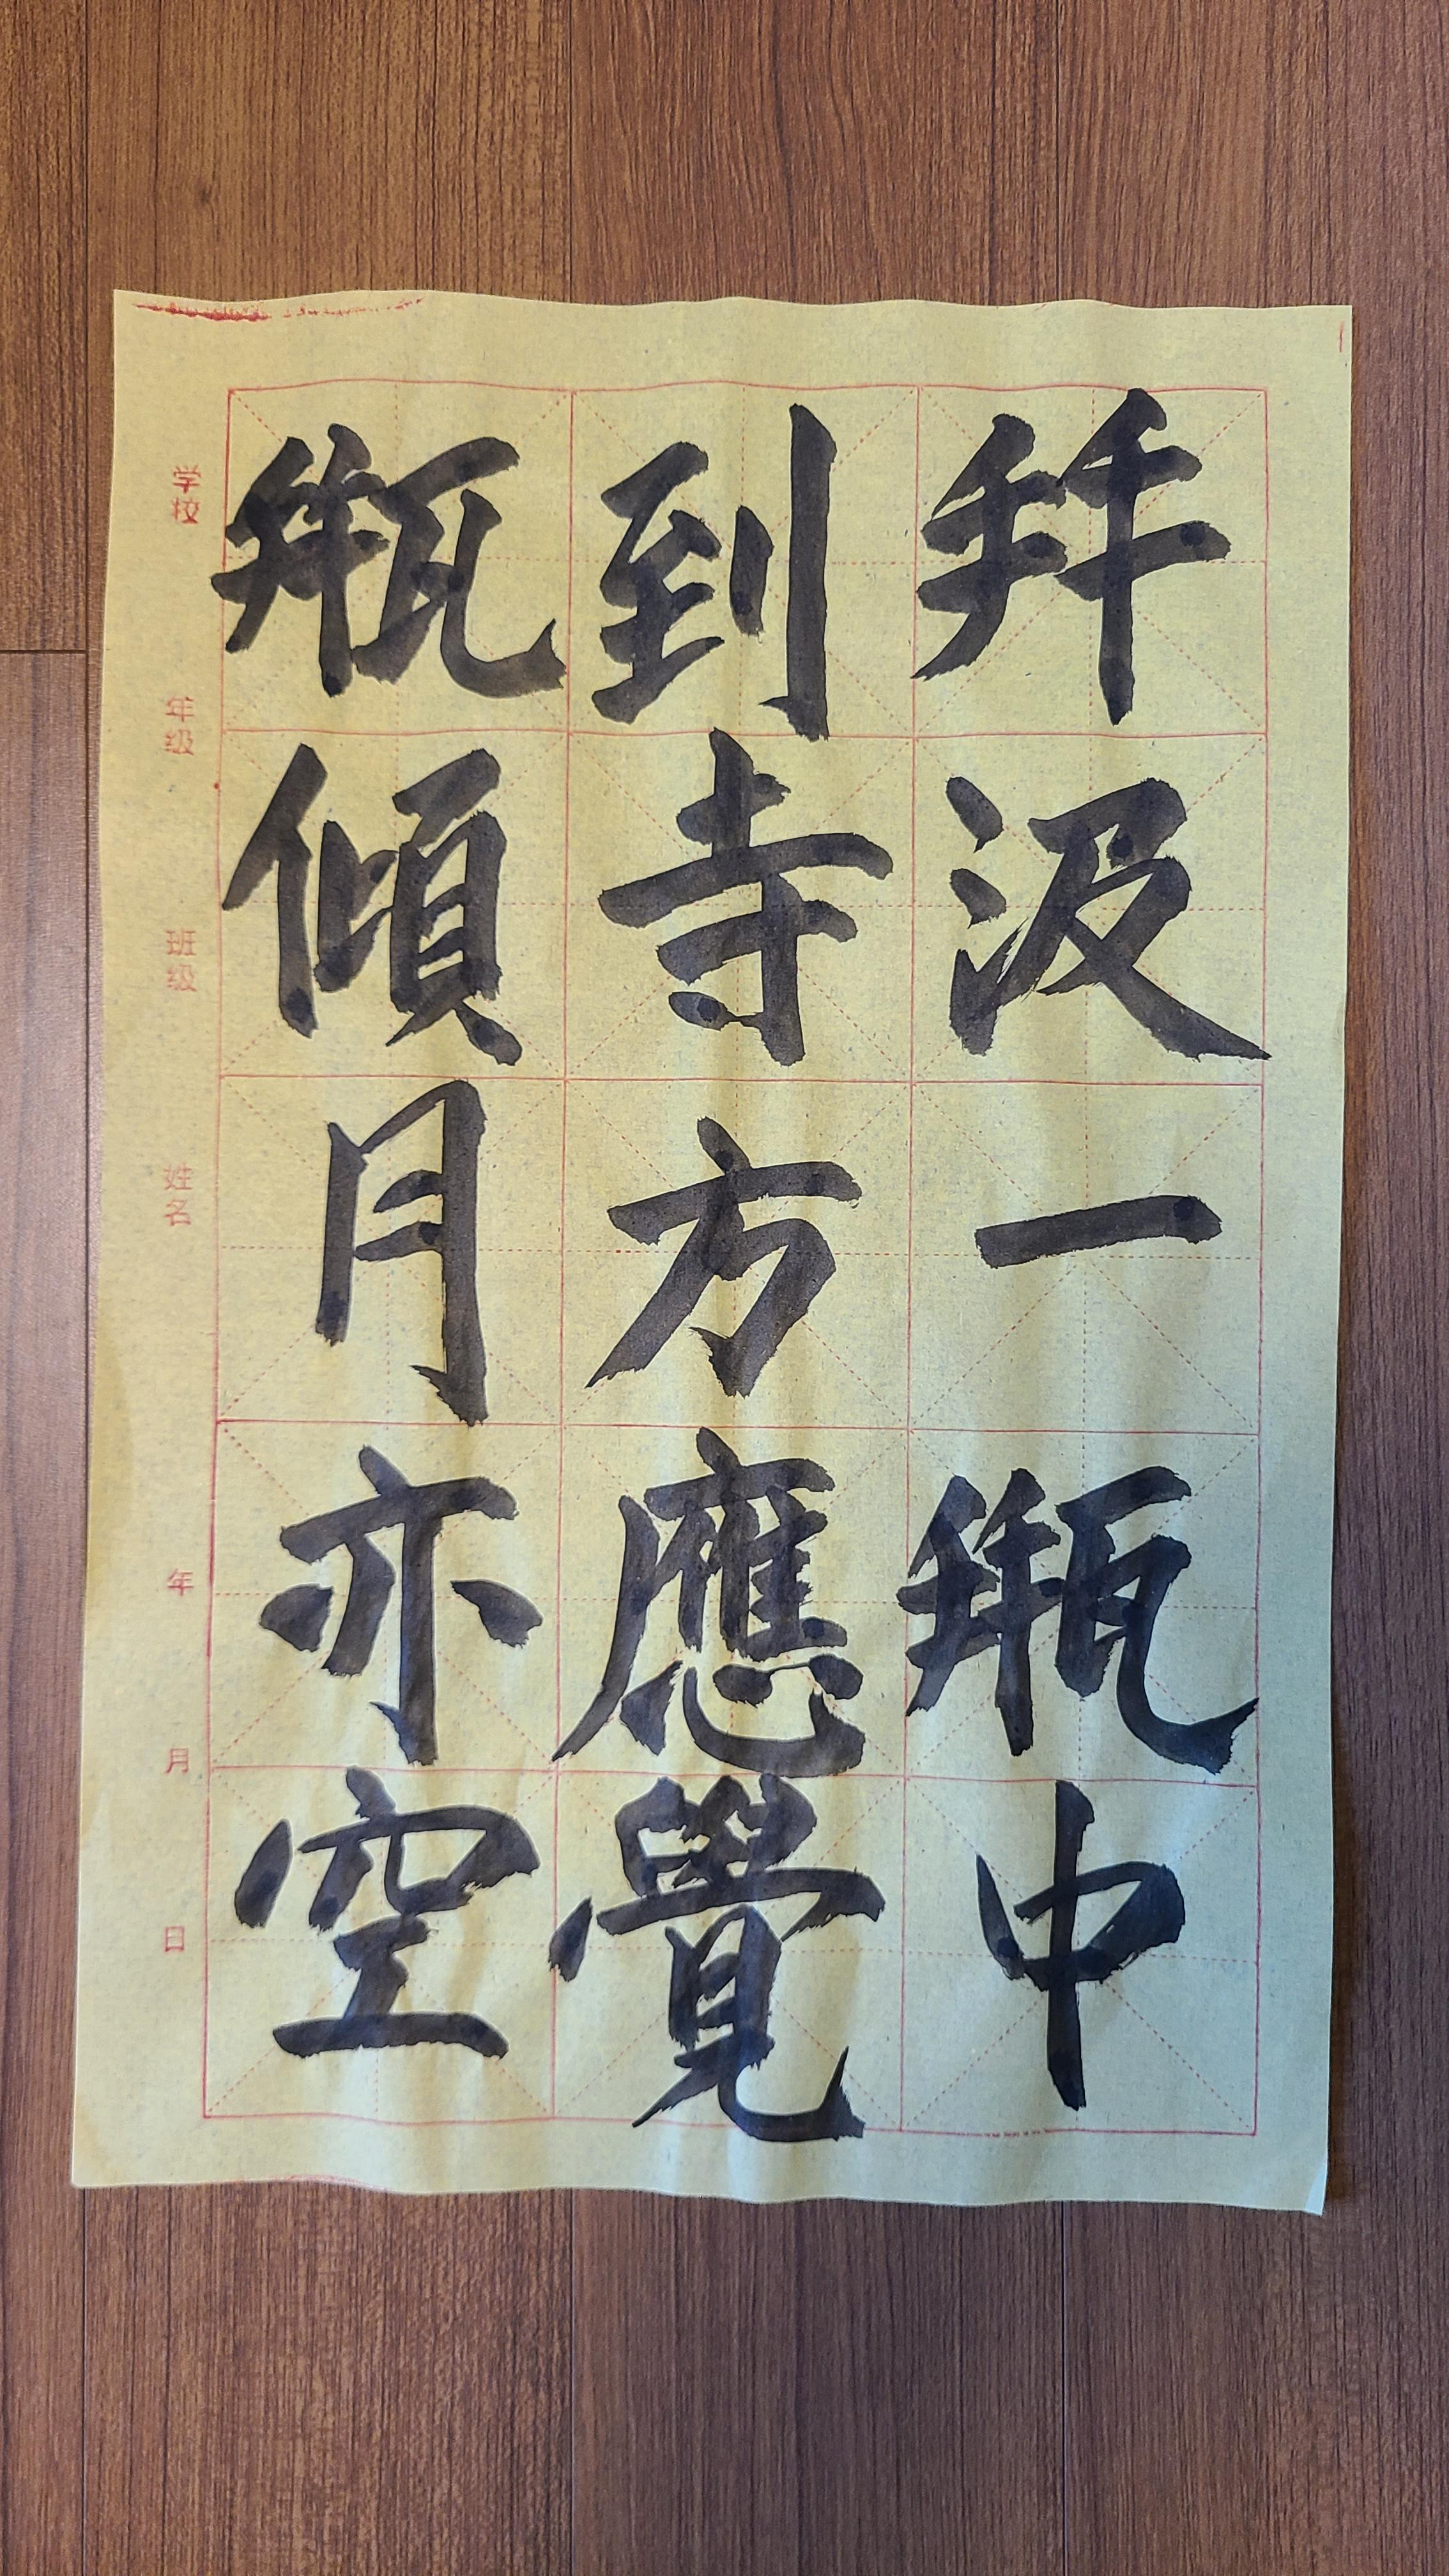 幷汲一甁中
到寺方應覺
甁傾月亦空
学校 年级 班级 姓名 年 月 日